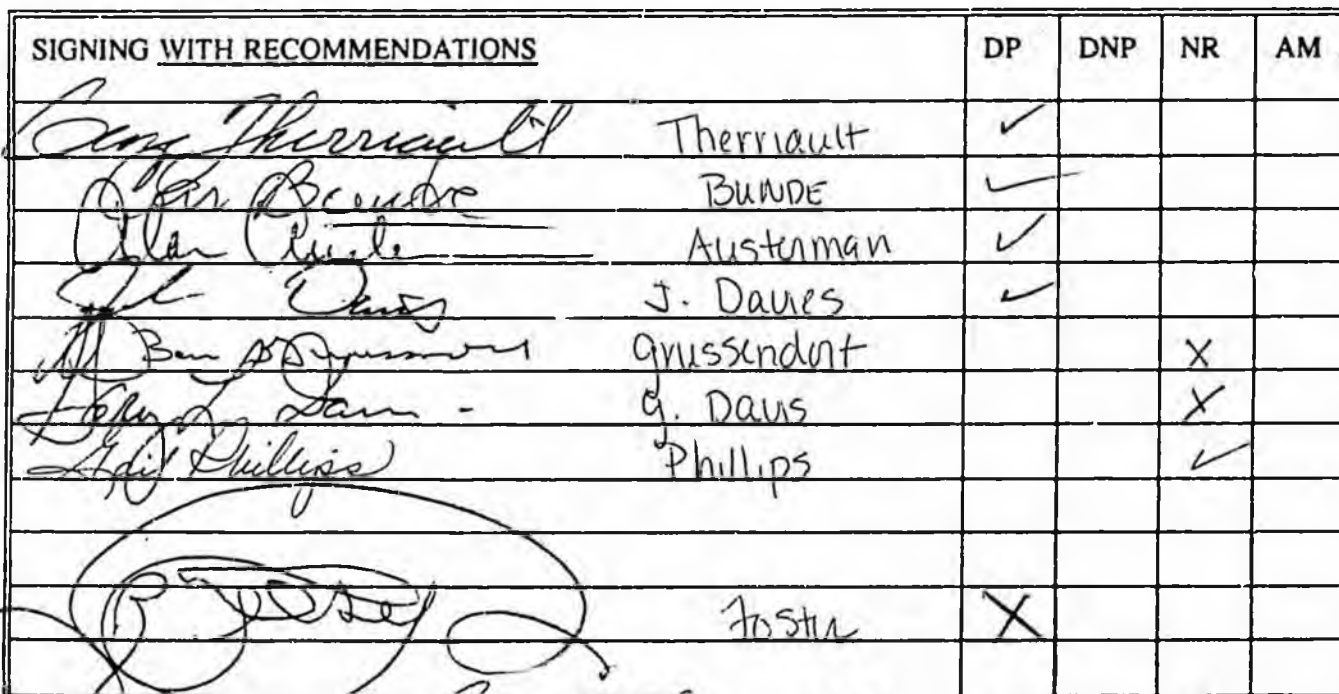 SIGNING WITH RECOMMENDATIONS DP DNP NR AM
Gene Therriault Therriault ✓
Con Bunde BUNDE ✓
Alan Austerman ✓
John Davies J. Davies ✓
Ben Grussendorf X
Gary L. Davis G. Davis X
Gail Phillips Phillips ✓
Foster X